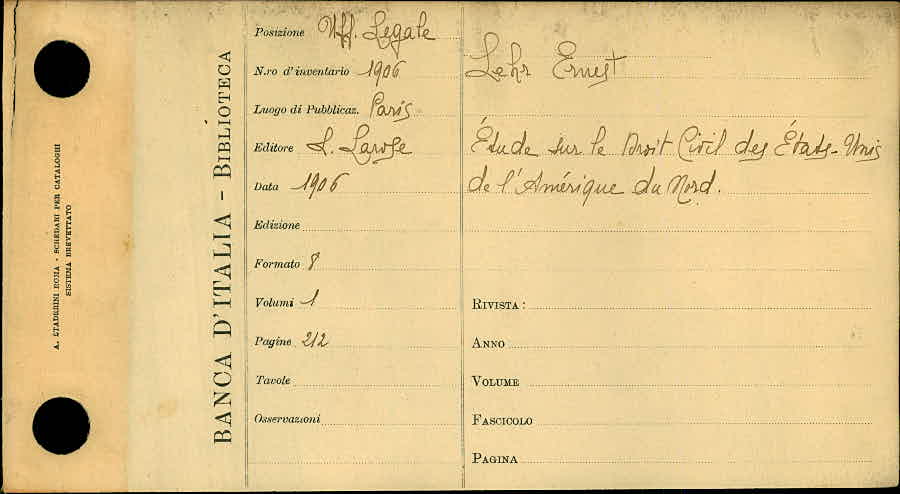 A. STADERINI ROMA - SCHEDARI PER CATALOGHI
SISTEMA BREVETTATO
BANCA D'ITALIA - BIBLIOTECA
Posizione Uff. Legale
N.ro d'inventario 1906
Luogo di Pubblicaz. Paris
Editore L. Larose
Data 1906
Edizione
Formato 8
Volumi 1
Pagine 212
Tavole
Osservazioni
Lehr Ernest
Étude sur le Droit Civil des États-Unis
de l'Amérique du Nord.
RIVISTA:
ANNO
VOLUME
FASCICOLO
PAGINA